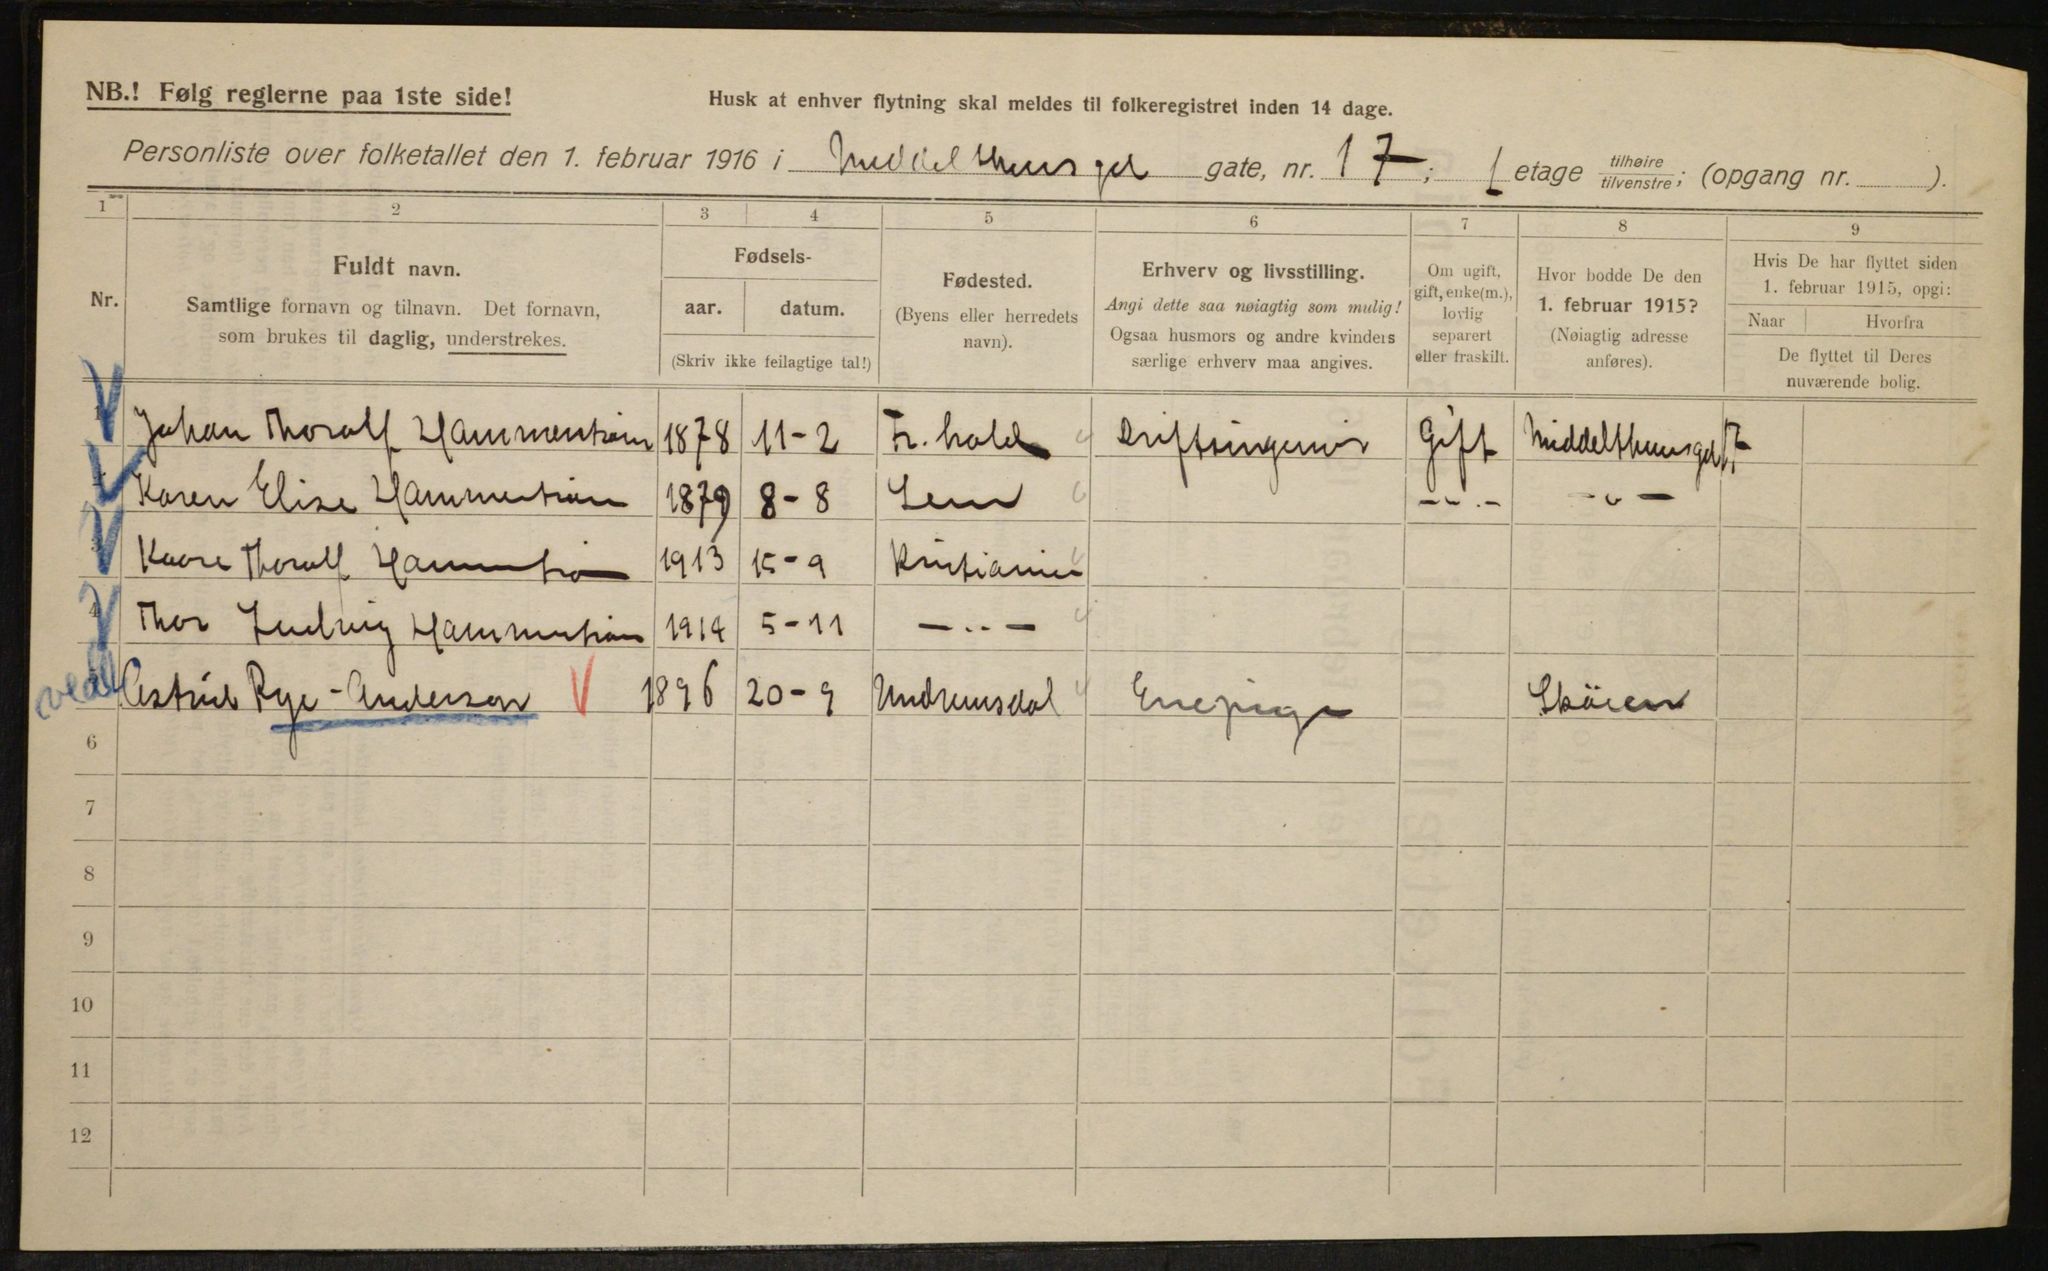 NB.! Følg reglerne paa 1ste side!
Husk at enhver flytning skal meldes til folkeregistret inden 14 dage.
Personliste over folketallet den 1. februar 1916 i Middelthunsgd gate, nr. 17; 1 etage tilhøire/tilvenstre; (opgang nr. ).
1 2 3 4 5 6 7 8 9
Nr.
Fuldt navn.
Samtlige fornavn og tilnavn. Det fornavn,
som brukes til daglig, understrekes.
Fødsels-
aar. datum.
(Skriv ikke feilagtige tal!)
Fødested.
(Byens eller herredets
navn).
Erhverv og livsstilling.
Angi dette saa nøiagtig som mulig!
Ogsaa husmors og andre kvinders
særlige erhverv maa angives.
Om ugift,
gift, enke(m.),
lovlig
separert
eller fraskilt.
Hvor bodde De den
1. februar 1915?
(Nøiagtig adresse
anføres).
Hvis De har flyttet siden
1. februar 1915, opgi:
Naar Hvorfra
De flyttet til Deres
nuværende bolig.
Johan Thoralf Hammerstrøm 1878 11-2 Fr. hald Driftsingeniør Gift Middelthunsgd 17
Karen Elise Hammerstrøm 1879 8-8 Lem -"- -"-
Kaare Thoralf Hammerstrøm 1913 15-9 Kristiania
4 Thor Ludvig Hammerstrøm 1914 5-11 -"-
Astrid Rye-Anderson 1896 20-9 Undrumsdal Enepige Skøien
6
7
8
9
10
11
12